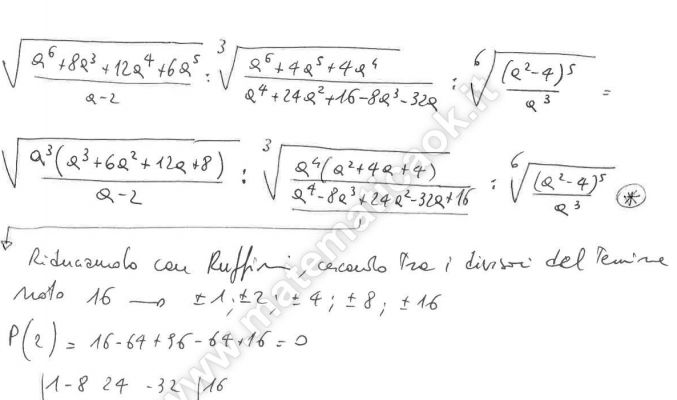 √((a⁶+8a³+12a⁴+6a⁵)/(a-2)) : ³√((a⁶+4a⁵+4a⁴)/(a⁴+24a²+16-8a³-32a)) : ⁶√((a²-4)⁵/a³) =
√(a³(a³+6a²+12a+8)/(a-2)) : ³√(a⁴(a²+4a+4)/(a⁴-8a³+24a²-32a+16)) : ⁶√((a²-4)⁵/a³) (*)
Riducendolo con Ruffini, cercando tra i divisori del Termine
noto 16 → ±1; ±2; ±4; ±8; ±16
P(2) = 16-64+96-64+16=0
|1 -8 24 -32 |16
www.matematicaok.it